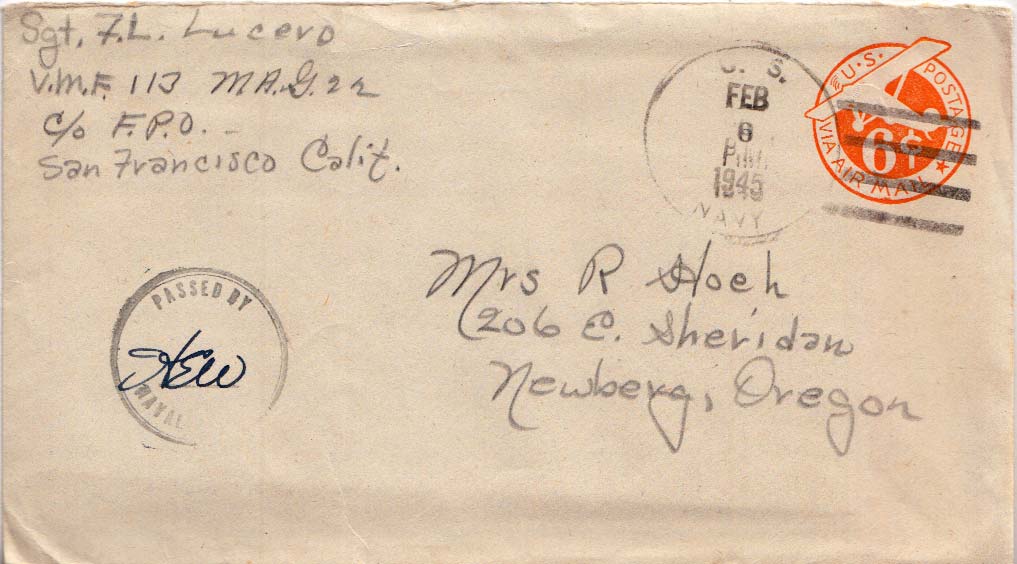 Sgt. F.L. Lucero
V.M.F. 113 M.A.G. 22
c/o F.P.O.
San Francisco Calif.
U. S.
FEB
6
P.M.
1945
NAVY
U.S. POSTAGE
6¢
VIA AIR MAIL
PASSED BY
NAVAL
Mrs R Hoeh
206 E. Sheridan
Newberg, Oregon